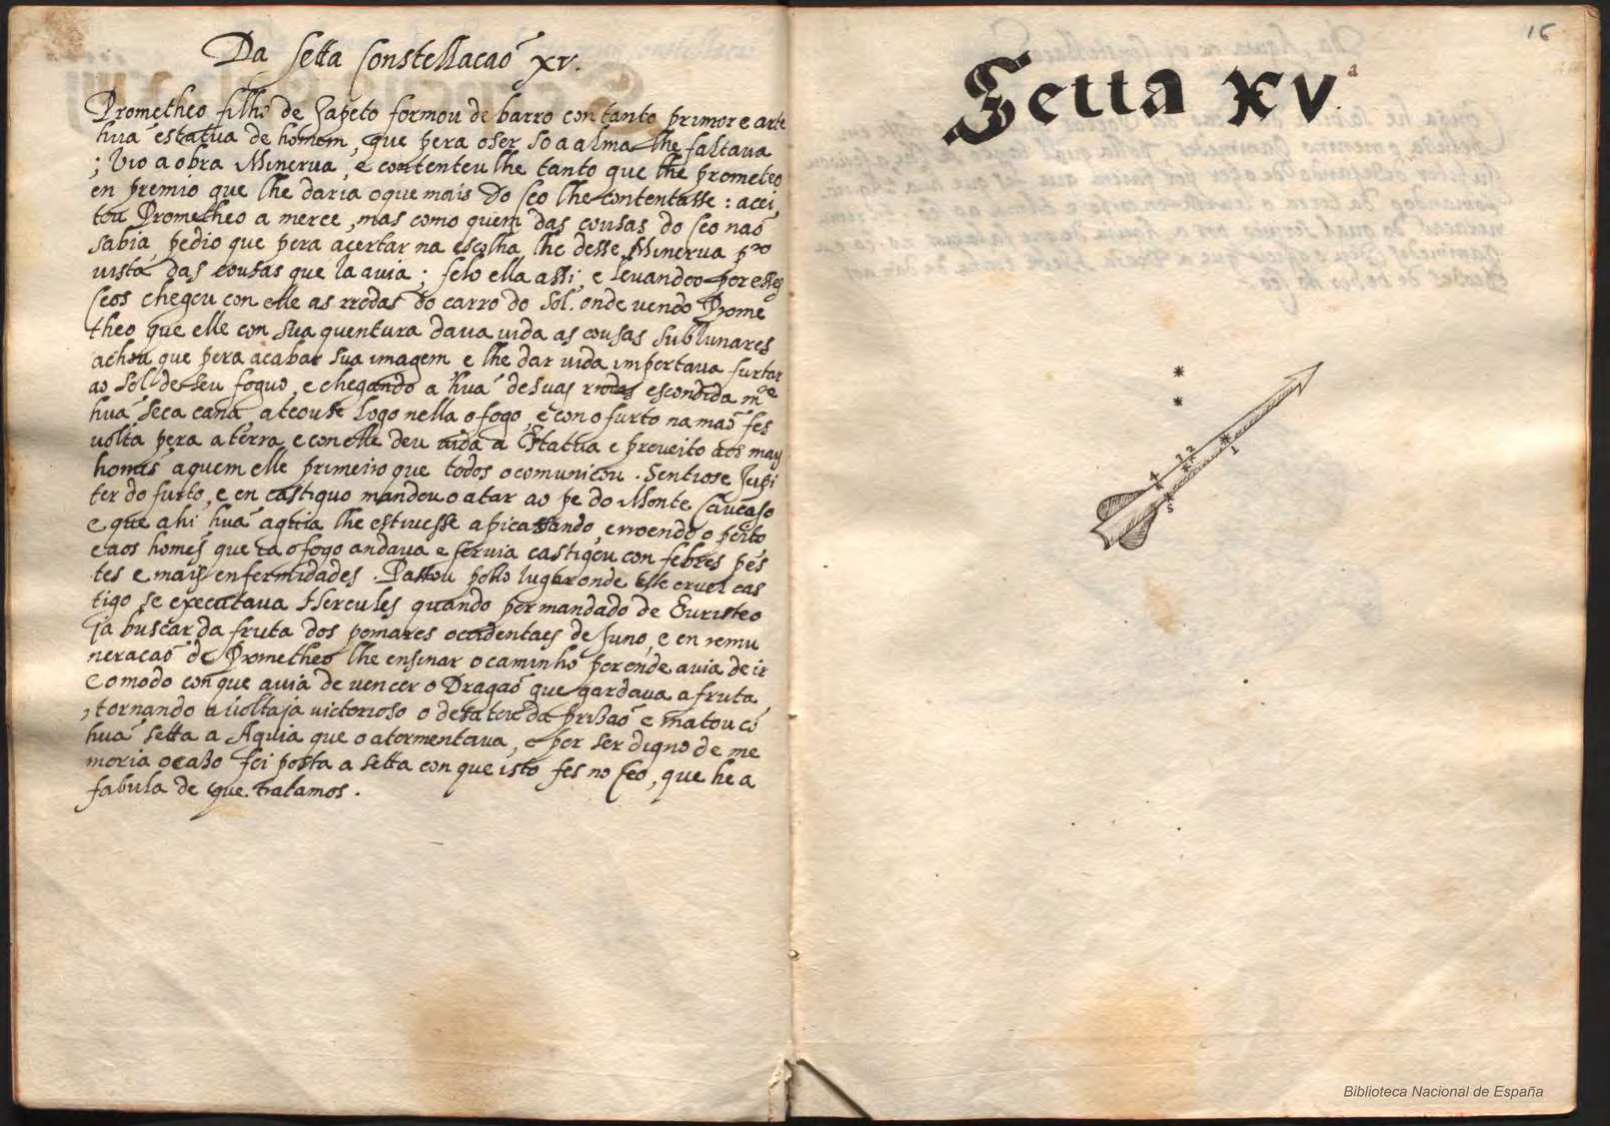 Da setta Constellacaõ xv.
Prometheo filho de Japeto formou de barro con tanto primor e arte
huã estatua de homem, que pera o ser so a alma lhe faltaua
; Vio a obra Minerua, e contenteu lhe tanto que lhe prometeo
en premio que lhe daria o que mais do Ceo lhe contentasse: acei
tou Prometheo a merce, mas como quem das cousas do Ceo naõ
sabia, pedio que pera acertar na escolha lhe desse Minerua pro
uista das cousas que la auia; felo ella assi, e leuandoo por esses
Ceos chegou con elle as rrodas do carro do Sol. onde vendo Prome
theo que elle con sua quentura daua uida as cousas sublunares
achou que pera acabar sua imagem e lhe dar uida importaua furtar
ao Sol de seu foguo, e chegando a huã de suas rrodas escondida mte
huã seca cana ateouse logo nella o fogo, e con o furto na maõ fes
uolta pera a terra, e con elle deu uida a Estatua e proueito aos mais
homẽs aquem elle primeiro que todos o comunicou. Sentiose Jupi
ter do furto, e en castiguo mandou o atar ao pe do Monte Caucaso
e que ahi huã aguia lhe estiuesse apicassando, e rroendo o peito
e aos homẽs que ca o fogo andaua e seruia castigou con febres pes
tes e mais enfermidades. Passou pollo lugar onde este cruel cas
tigo se executaua Hercules quando por mandado de Euristeo
ia buscar da fruta dos pomares occidentaes de Juno, e en remu
neracaõ de Prometheo lhe ensinar o caminho por onde auia de ir
e o modo con que auia de vencer o Dragaõ que gardaua a fruta
, tornando a uolta ja victorioso o desatou da prisaõ e matou cõ
huã setta a Aguia que o atormentaua, e por ser digno de me
moria o caso foi posta a setta con que isto fes no Ceo, que he a
fabula de que tratamos.
16
Setta xv.a
4
3
2
1
5
Biblioteca Nacional de España